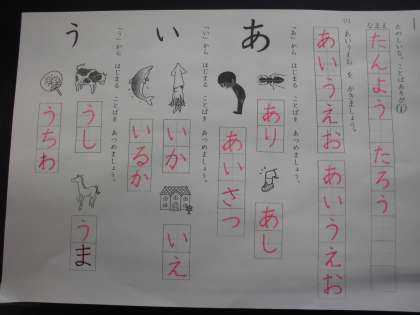 たのしいな、ことばあそび①
なまえ
たんよう たろう
(1) あいうえおを かきましょう。
あいうえお
あいうえお
あ
「あ」から はじまる ことばを あつめましょう。
あり
あし
あいさつ
い
「い」から はじまる ことばを あつめましょう。
いか
いえ
いるか
う
「う」から はじまる ことばを あつめましょう。
うし
うま
うちわ